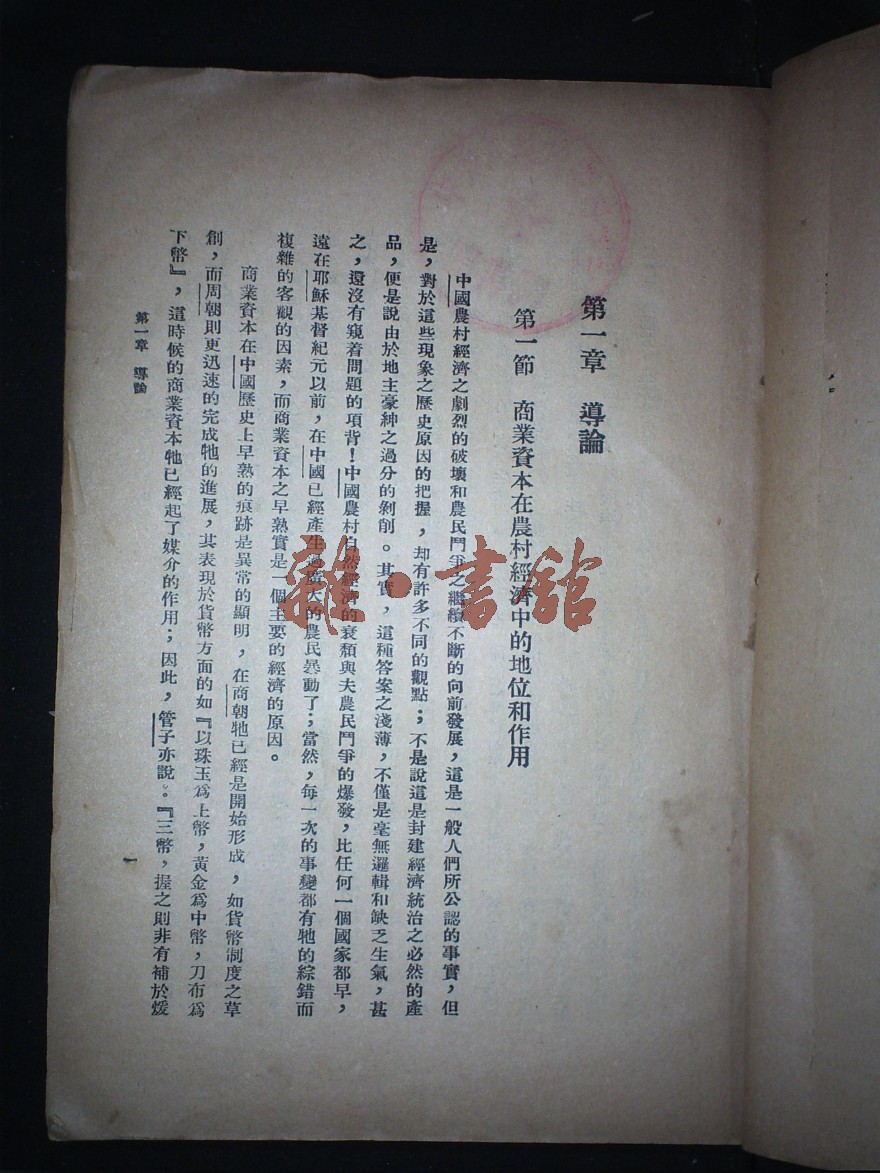 第一章　導論
第一節　商業資本在農村經濟中的地位和作用
中國農村經濟之劇烈的破壞和農民鬥爭之繼續不斷的向前發展，這是一般人們所公認的事實，但
是，對於這些現象之歷史原因的把握，却有許多不同的觀點；不是說這是封建經濟統治之必然的產
品，便是說由於地主豪紳之過分的剝削。其實，這種答案之淺薄，不僅是毫無邏輯和缺乏生氣，甚
之，還沒有窺着問題的項背！中國農村自然經濟的衰頹與夫農民鬥爭的爆發，比任何一個國家都早，
遠在耶穌基督紀元以前，在中國已經產生過廣大的農民暴動了；當然，每一次的事變都有牠的綜錯而
複雜的客觀的因素，而商業資本之早熟實是一個主要的經濟的原因。
商業資本在中國歷史上早熟的痕跡是異常的顯明，在商朝牠已經是開始形成，如貨幣制度之草
創，而周朝則更迅速的完成牠的進展，其表現於貨幣方面的如『以珠玉爲上幣，黃金爲中幣，刀布爲
下幣』，這時候的商業資本牠已經起了媒介的作用；因此，管子亦說。『三幣，握之則非有補於煖
第一章　導論
一
雜·書舘